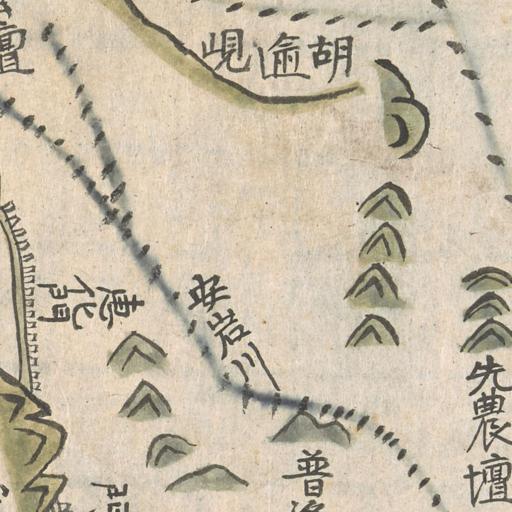 壇
胡逾峴
惠化門
安岩川
先農壇
普